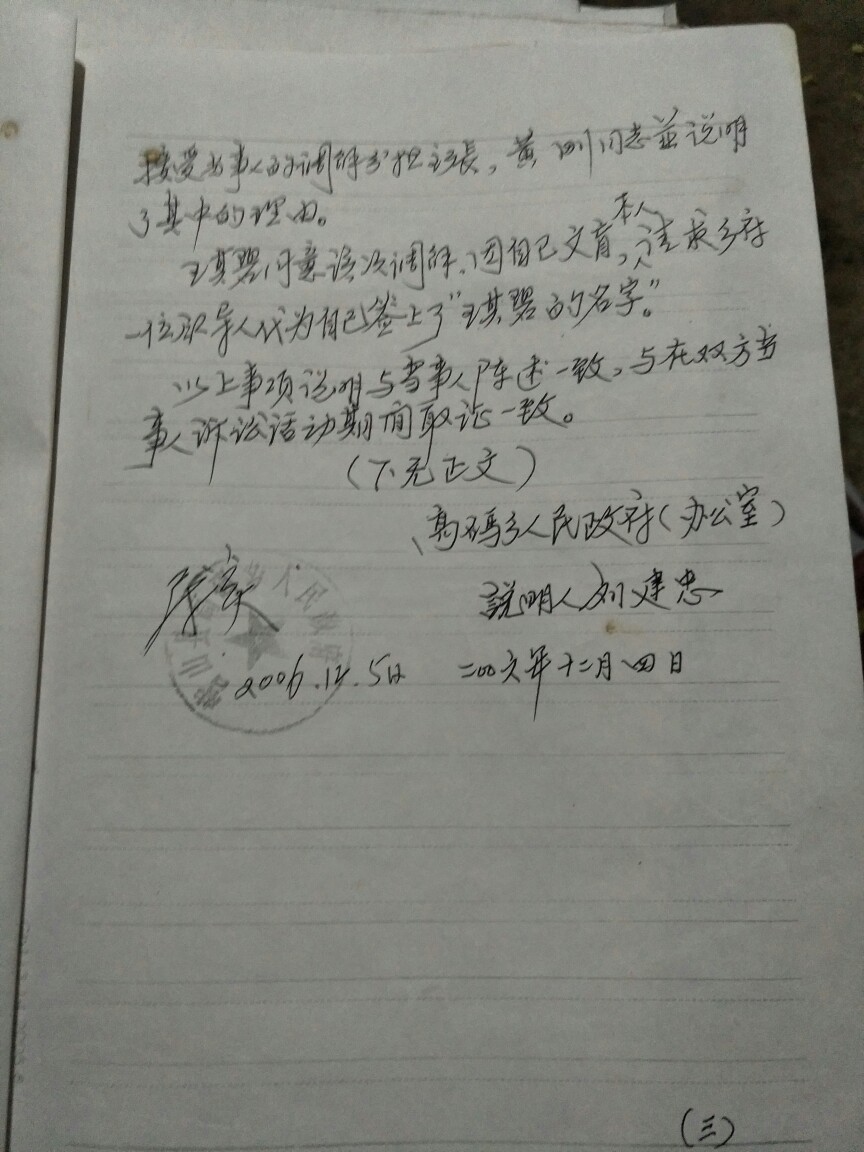 接受当事人的调解分担主張，黄四川同志並说明
了其中的理由。
王其碧同意该次调解，因自己文盲，本人请求乡府
一位领导人代为自己签上了“王其碧的名字。”
以上事项说明与当事人陈述一致，与在双方当
事人诉讼活动期间取证一致。
（下无正文）
高码乡人民政府（办公室）
説明人刘建忠
2006.12.5日
二00六年十二月四日
（三）